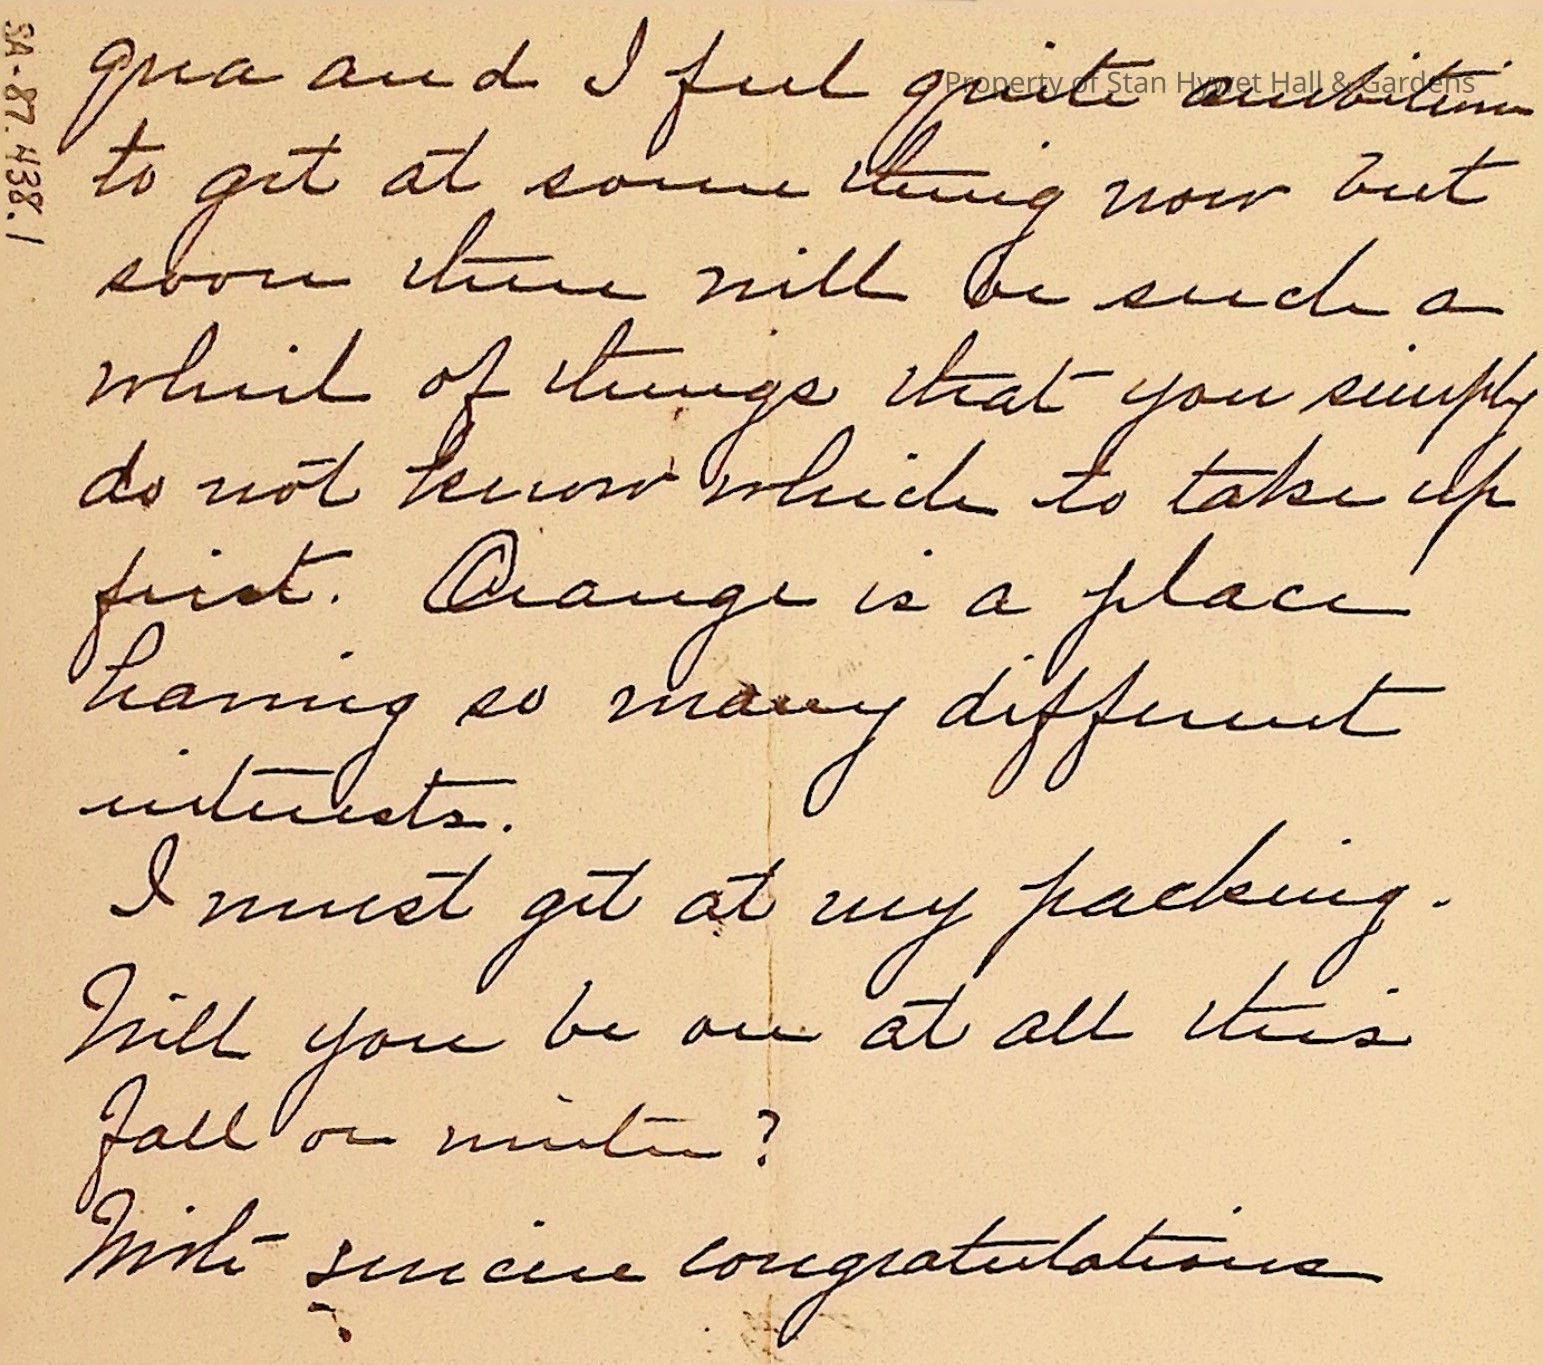 SA-87.438.1
Property of Stan Hywet Hall & Gardens
and I feel quite ambitious
to get at some thing now but
soon there will be such a
whirl of things that you simply
do not know which to take up
first. Orange is a place
having so many different
interests.
I must get at my packing.
Will you be on at all this
Fall or winter?
With sincere congratulations